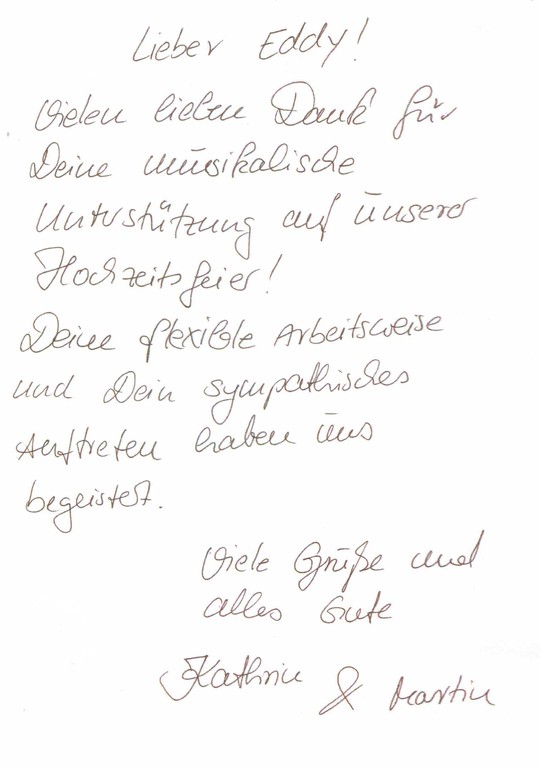 Lieber Eddy!
Vielen lieben Dank für
Deine musikalische
Unterstützung auf unserer
Hochzeitsfeier!
Deine flexible Arbeitsweise
und Dein sympathisches
Auftreten haben uns
begeistert.
Viele Grüße und
alles Gute
Kathrin & Martin